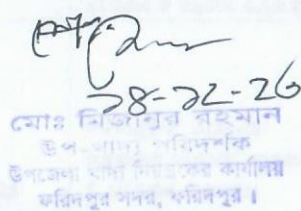 ২৪-১২-২৫
মোঃ মিজানুর রহমান
উপ-খাদ্য পরিদর্শক
উপজেলা খাদ্য নিয়ন্ত্রকের কার্যালয়
ফরিদপুর সদর, ফরিদপুর।